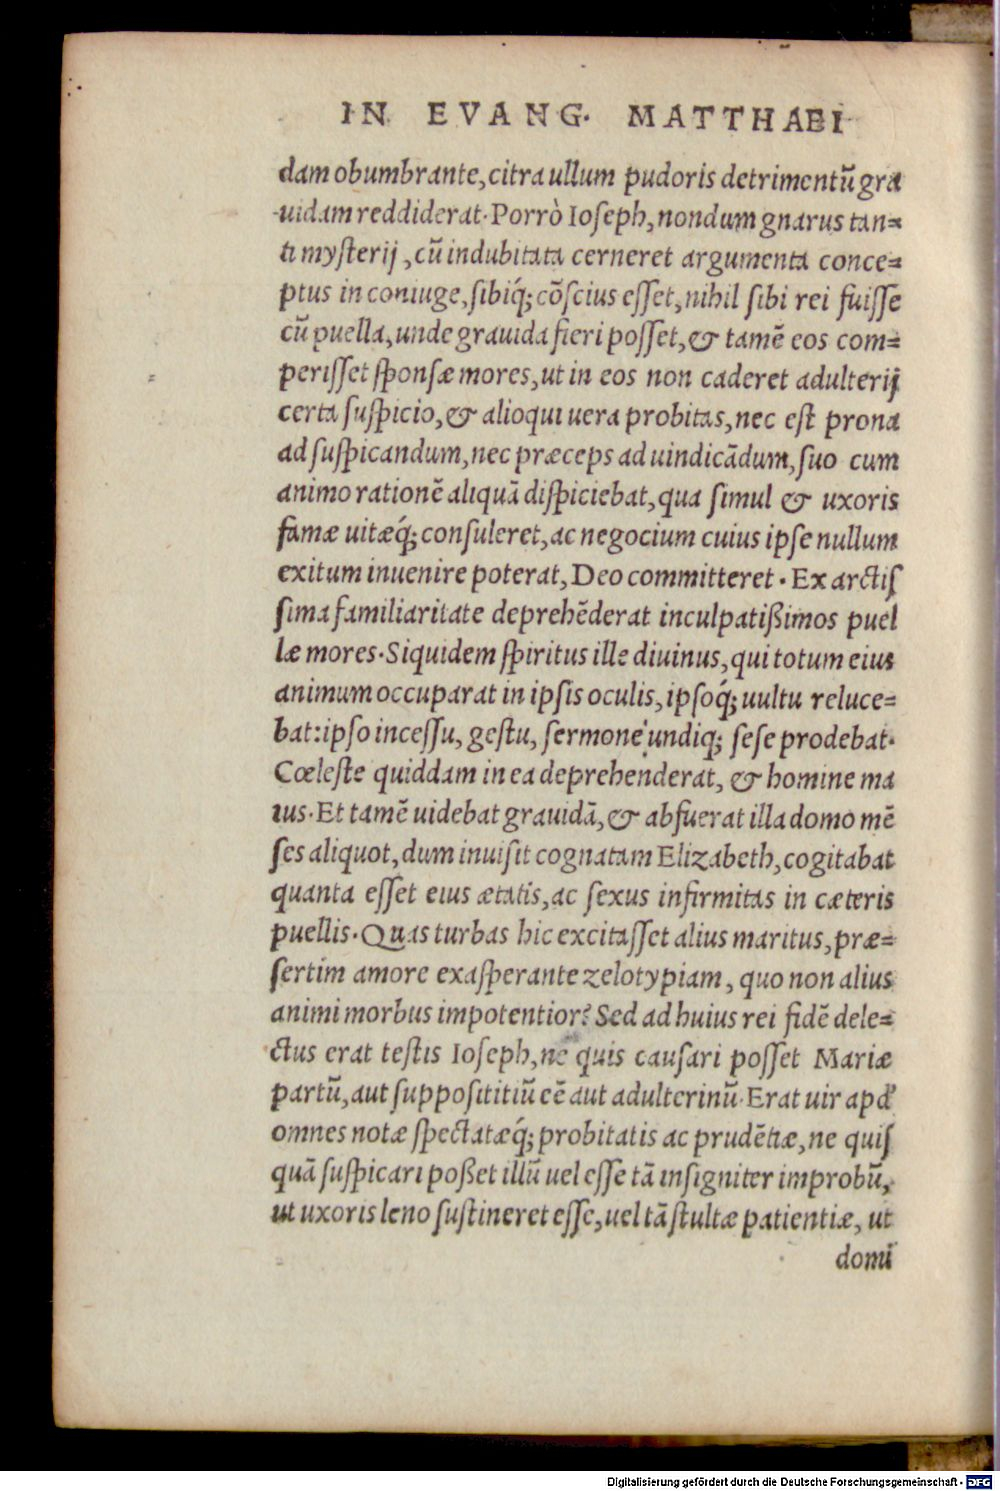 IN EVANG. MATTHAEI
dam obumbrante, citra ullum pudoris detrimentũ gra
uidam reddiderat. Porrò Ioseph, nondum gnarus tan=
ti mysterij, cũ indubitata cerneret argumenta conce=
ptus in coniuge, sibiq́; cõscius esset, nihil sibi rei fuisse
cũ puella, unde grauida fieri posset, & tamẽ eos com=
perisset sponsæ mores, ut in eos non caderet adulterij
certa suspicio, & alioqui uera probitas, nec est prona
ad suspicandum, nec præceps ad uindicãdum, suo cum
animo rationẽ aliquã dispiciebat, qua simul & uxoris
famæ uitæq́; consuleret, ac negocium cuius ipse nullum
exitum inuenire poterat, Deo committeret. Ex arctis
sima familiaritate deprehẽderat inculpatißimos puel
læ mores. Siquidem spiritus ille diuinus, qui totum eius
animum occuparat in ipsis oculis, ipsoq́; uultu reluce=
bat: ipso incessu, gestu, sermone undiq; sese prodebat.
Cœleste quiddam in ea deprehenderat, & homine ma
ius. Et tamẽ uidebat grauidã, & abfuerat illa domo mẽ
ses aliquot, dum inuisit cognatam Elizabeth, cogitabat
quanta esset eius ætatis, ac sexus infirmitas in cæteris
puellis. Quas turbas hic excitasset alius maritus, præ=
sertim amore exasperante zelotypiam, quo non alius
animi morbus impotentior? Sed ad huius rei fidẽ dele=
ctus erat testis Ioseph, ne quis causari posset Mariæ
partũ, aut supposititiũ eẽ aut adulterinũ. Erat uir apd'
omnes notæ spectatæq́; probitatis ac prudẽtiæ, ne quis
quã suspicari poßet illũ uel esse tã insigniter improbũ,
ut uxoris leno sustineret esse, uel tã stultæ patientiæ, ut
domi
Digitalisierung gefördert durch die Deutsche Forschungsgemeinschaft - DFG